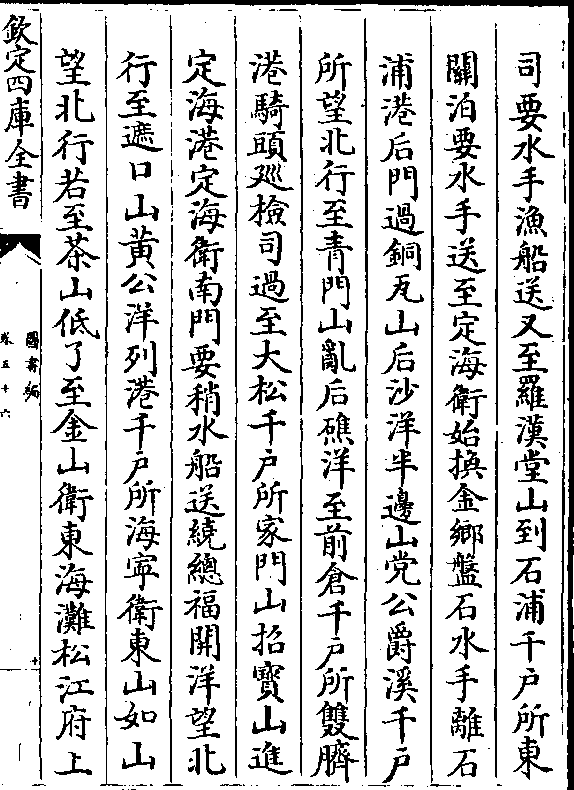 司要水手漁船送又至羅漢堂山到石浦千戶所東
關泊要水手送至定海衛始換金鄉盤石水手離石
浦港后門過銅瓦山后沙洋半邊山党公爵溪千戶
所望北行至青門山亂后礁洋至前倉千戶所雙臍
港騎頭廵檢司過至大松千戶所家門山招寶山進
定海港定海衛南門要稍水船送繞總福開洋望北
行至遮口山黄公洋列港千戶所海寧衛東山如山
望北行若至茶山低了至金山衛東海灘松江府上
欽定四庫全書
圖書編
卷五十六